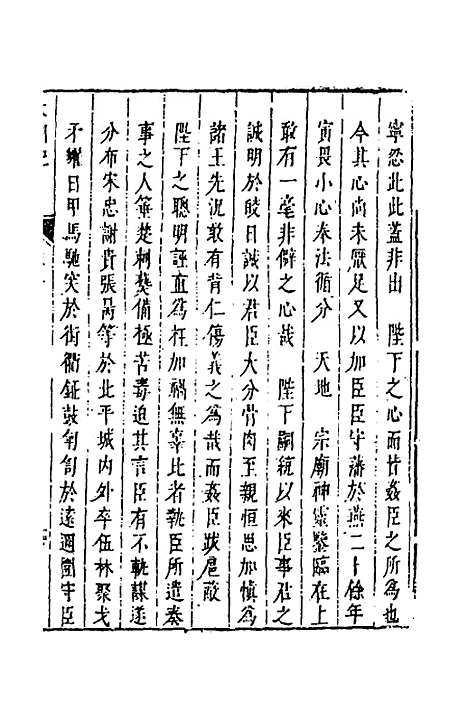 寧忍此此蓋非出　陛下之心而皆姦臣之所為也
今其心尚未厭足又以加臣臣守藩於燕二十餘年
寅畏小心奉法循分　天地　宗廟神靈鑒臨在上
敢有一毫非僻之心哉　陛下嗣統以來臣事君之
誠明於皎日誠以君臣大分骨肉至親恒思加慎為
諸王先況敢有背仁傷義之為哉而姦臣跋扈敢
陛下之聰明誣直為枉加禍無辜比者執臣所遣奏
事之人箠楚刺爇備極苦毒迫其言臣有不軌謀遂
分布宋忠謝貴張昺等於北平城內外卒伍林聚戈
矛耀日甲馬馳突於街衢鉦鼓匉訇於遠邇圍守臣